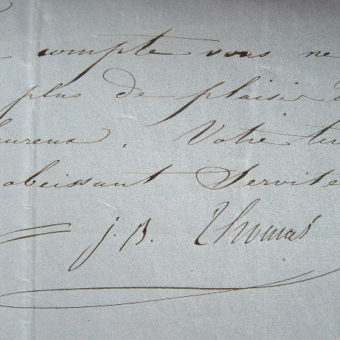 compte vous ne
plus de plaisir
heureux. Votre
obeissant Servite
J. B. Thomas